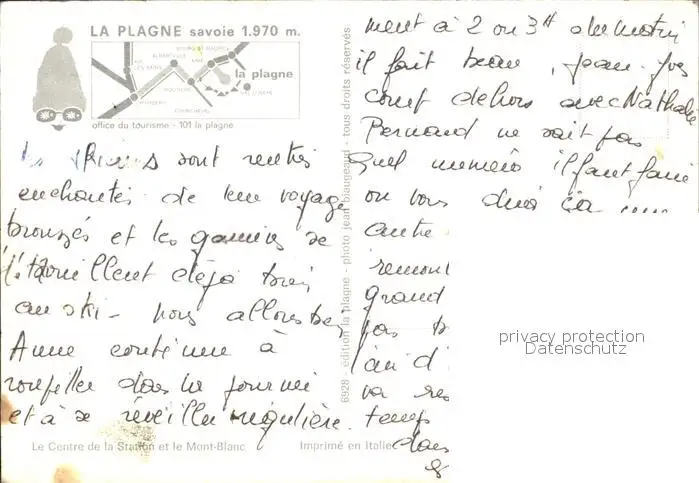 LA PLAGNE savoie 1.970 m.
la plagne
office du tourisme - 101 la plagne
sont rentrés
enchantés de leur voyage
bronzés et les gamins se
déjà bien
au ski - nous allons bien
Anne continue à
roupiller dans la journée
et à se réveiller régulière-
Le Centre de la Station et le Mont-Blanc
Imprimé en Italie
6928 - édition la plagne - photo jean blaugeaud - tous droits réservés
ment à 2 ou 3H du matin
il fait beau, Jean-Yves
court dehors avec Nathalie
Bernard ne sait pas
quel numéro il faut faire
on vous dira ça
autre
remont
grand
pas
va
temps
dans
privacy protection
Datenschutz